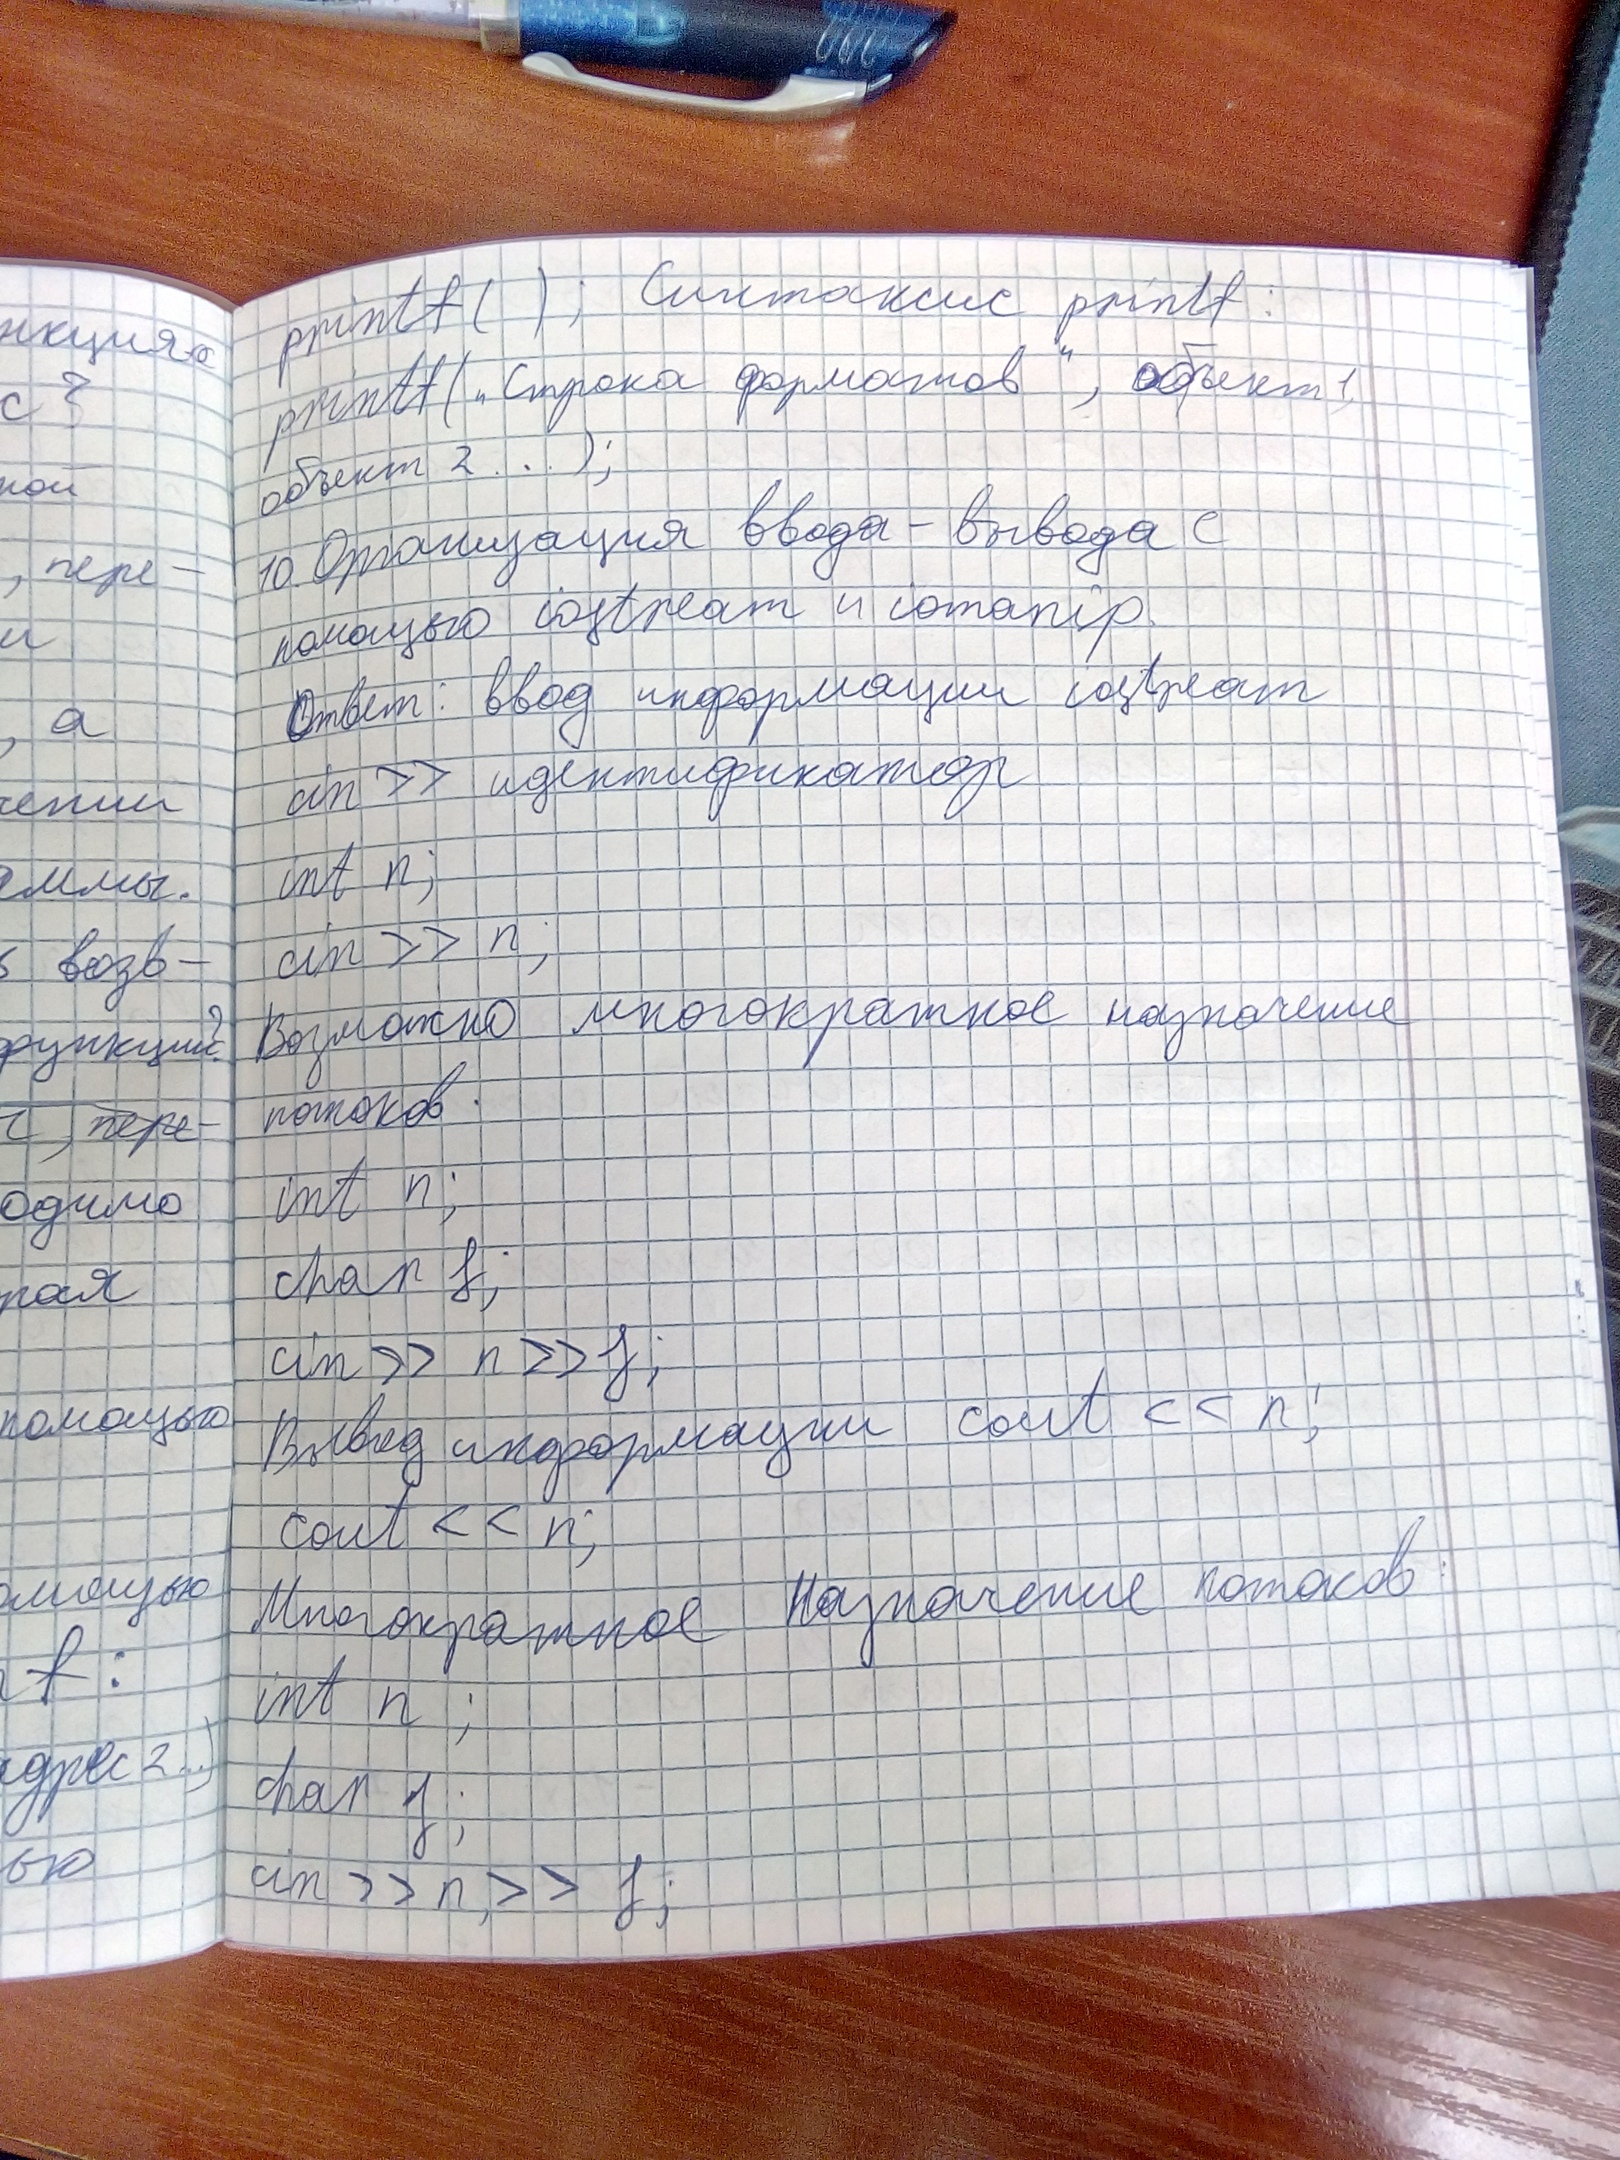 нкциях
с?
ной
, пере-
и
, а
чении
аммы.
возв-
функций?
, пере-
одимо
рая
помощью
омощью
f:
адрес 2...)
ью
printf( ); Синтаксис printf:
printf(„Строка форматов“, объект 1,
объект 2 ...);
10. Организация ввода-вывода с
помощью iostream и iomanip.
Ответ: ввод информации iostream
cin >> идентификатор
int n;
cin >> n;
Возможно многократное назначение
потоков.
int n;
char f;
cin >> n >> f;
Вывод информации cout << n;
cout << n;
Многократное назначение потоков:
int n ;
char f;
cin >> n, >> f;